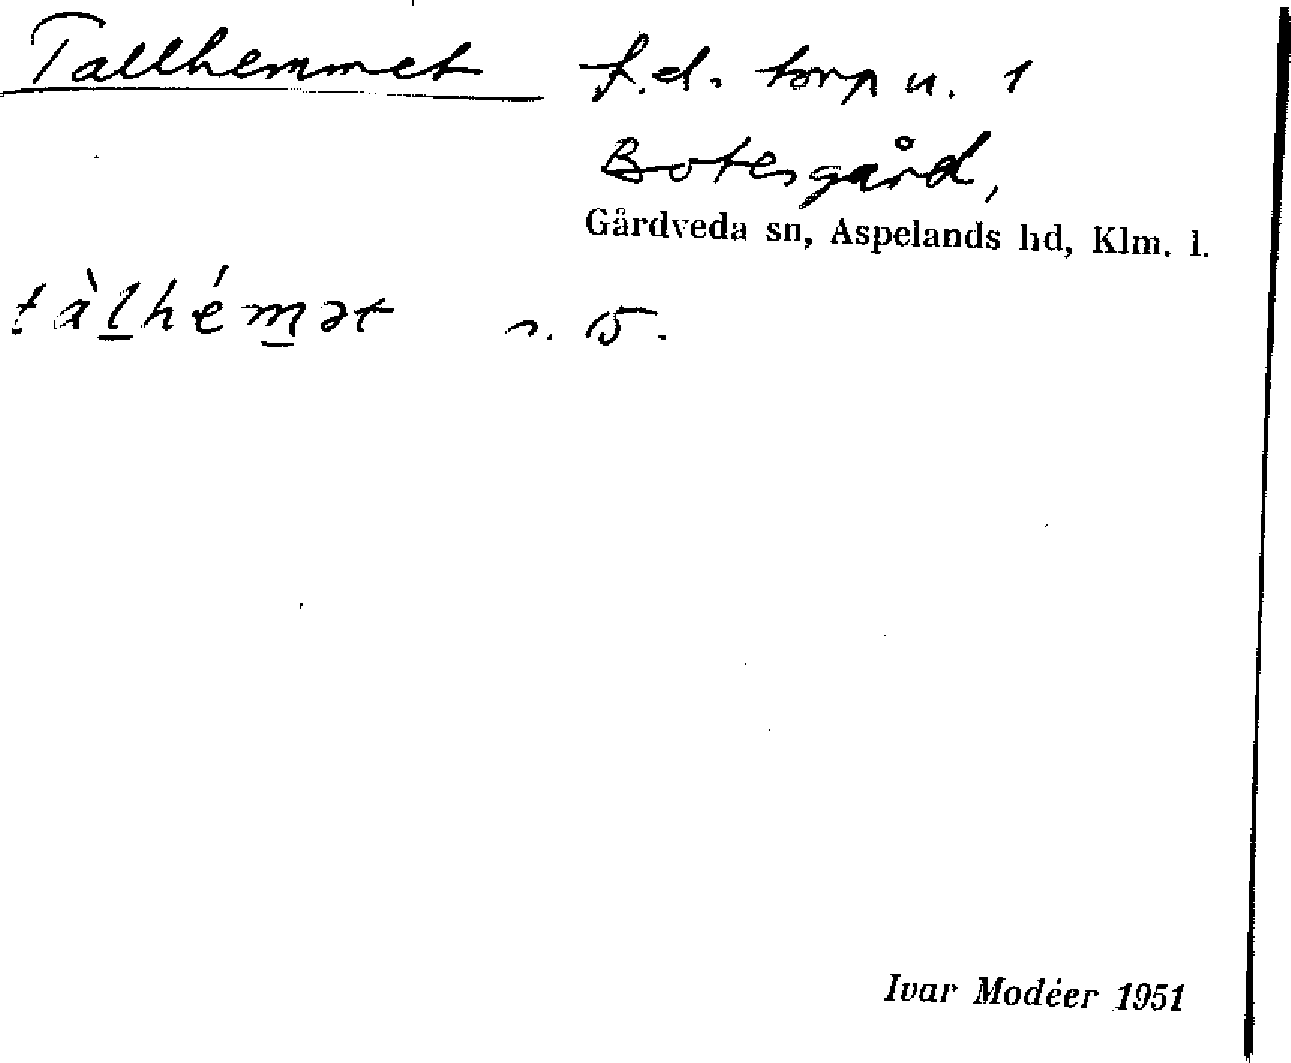 Tallhemmet f.d. torp u. 1
Botesgård,
Gårdveda sn, Aspelands hd, Klm. l.
tàl̲hém̲ət
Ivar Modéer 1951